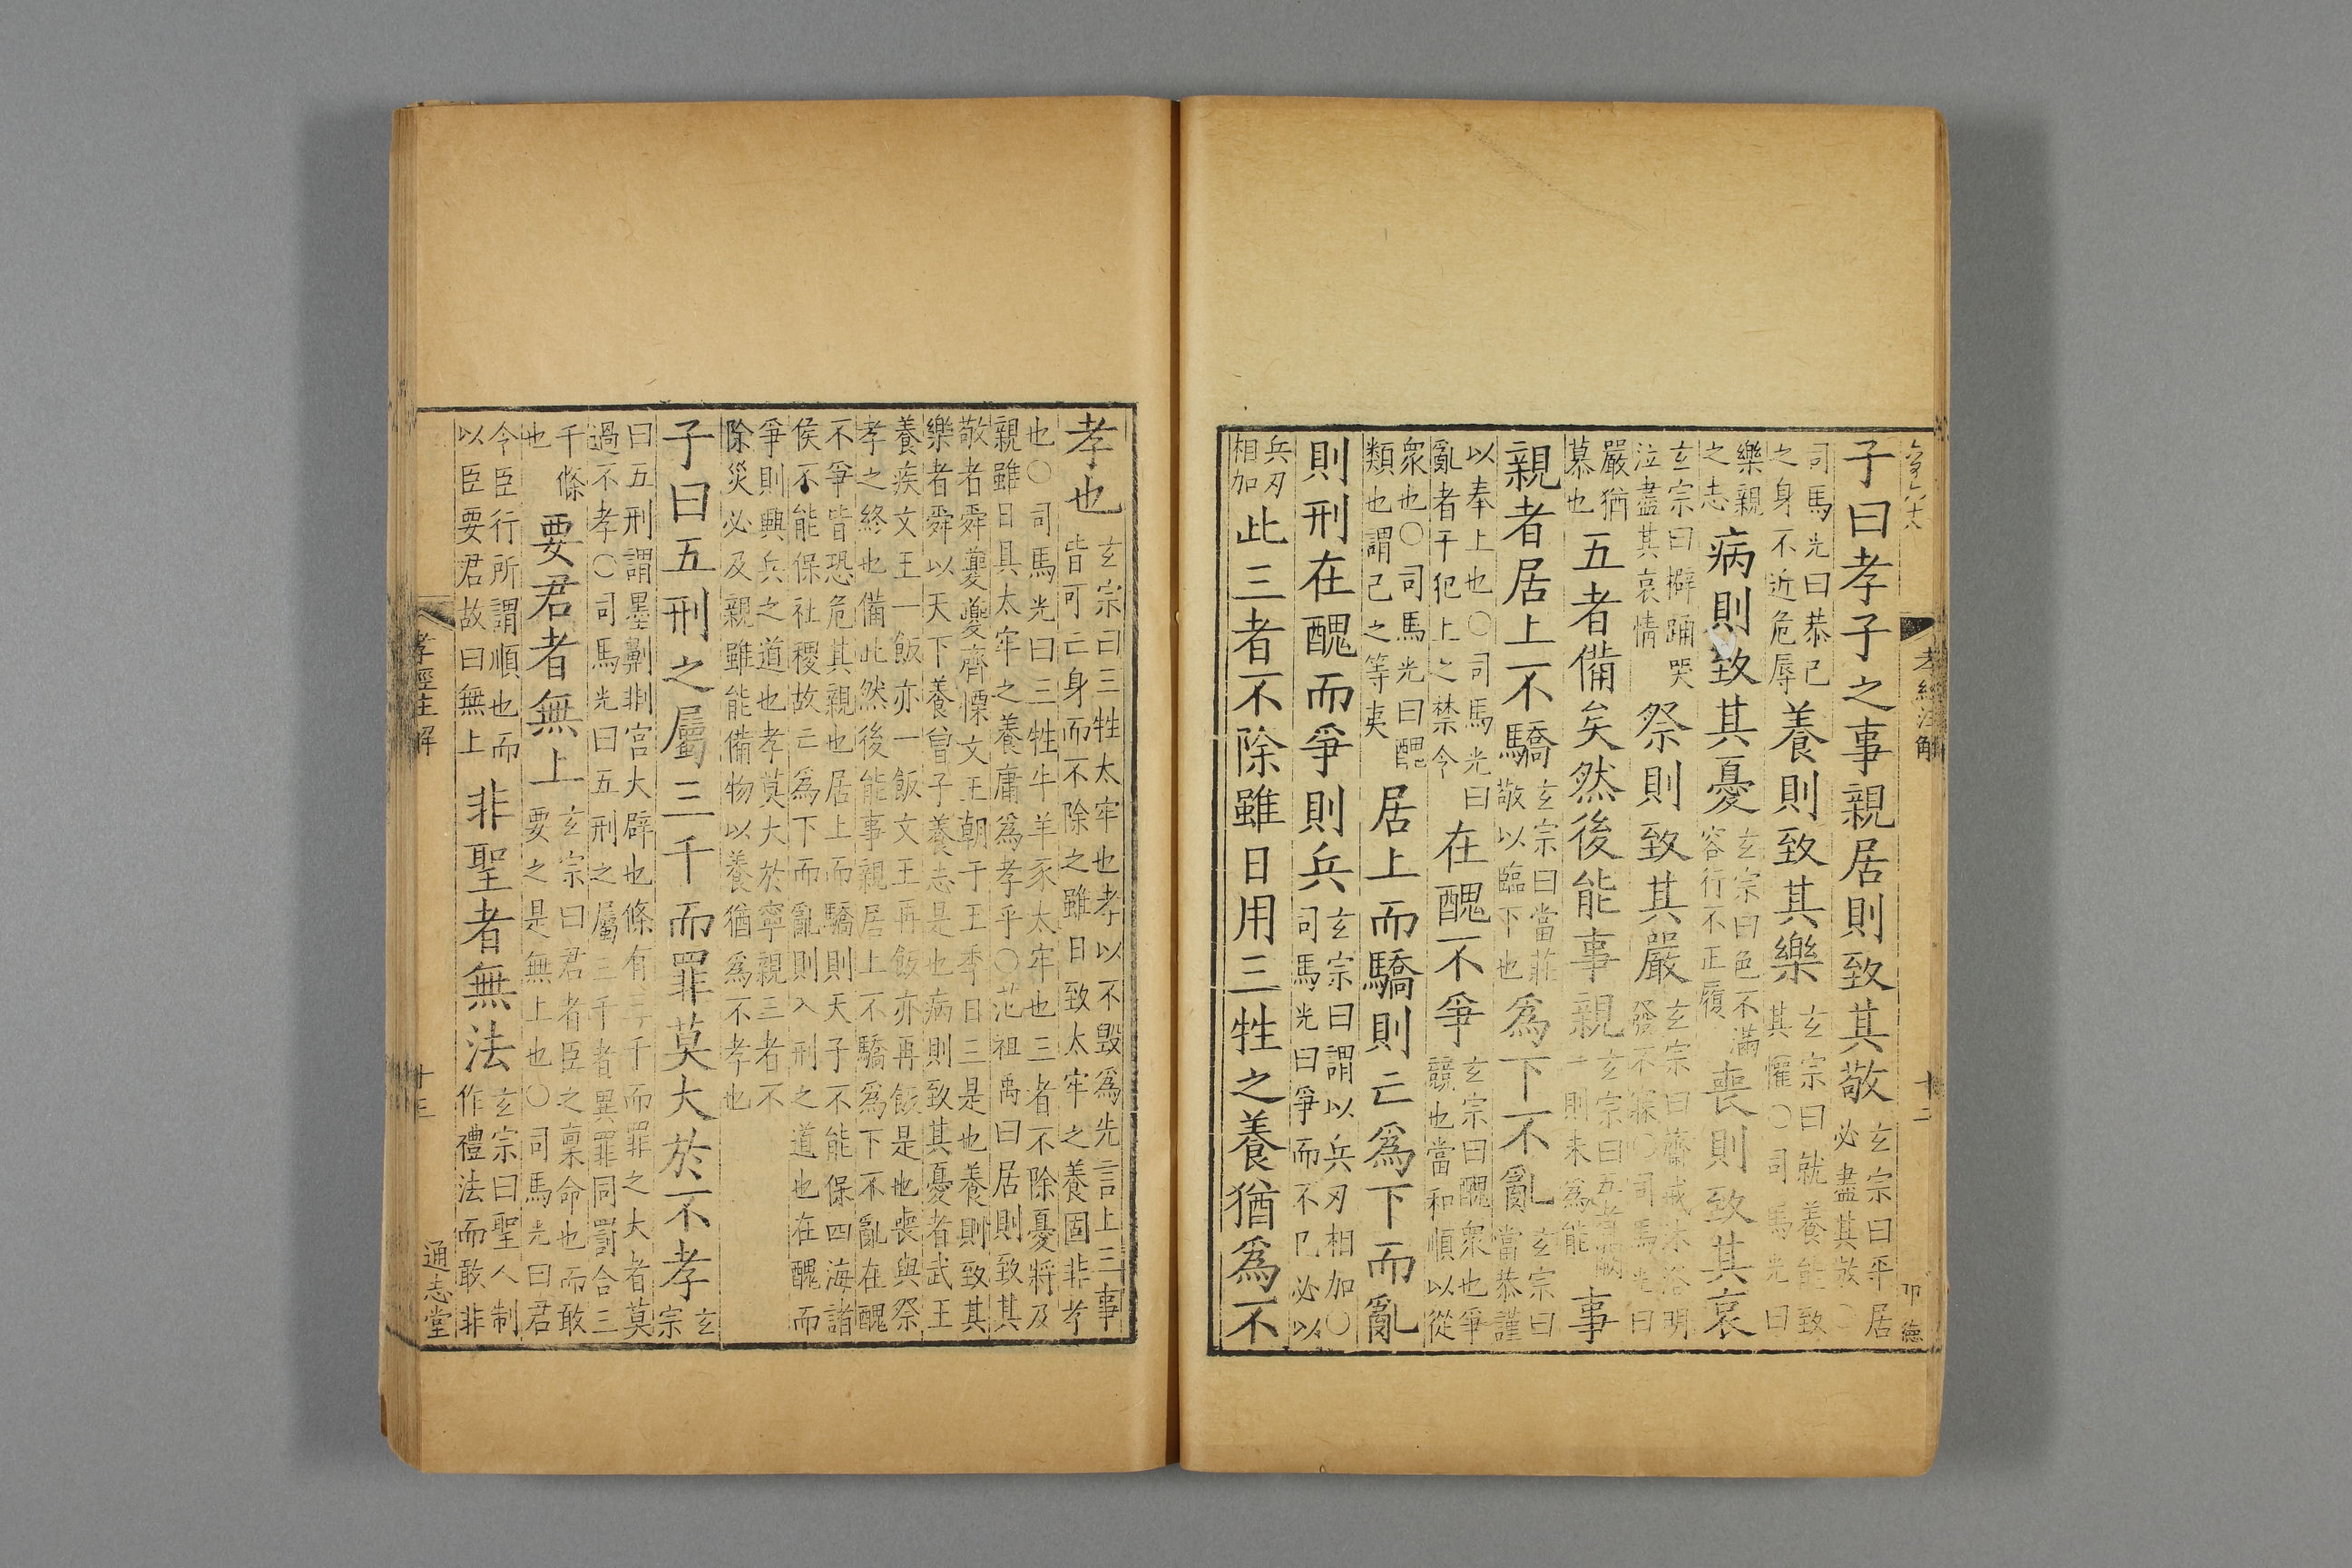 孝經注解
十二
子曰孝子之事親居則致其敬玄宗曰平居必盡其敬○
司馬光曰恭己之身不近危辱養則致其樂玄宗曰就養能致其懽○司馬光曰
樂親之志病則致其憂玄宗曰色不滿容行不正履喪則致其哀
玄宗曰擗踊哭泣盡其哀情祭則致其嚴玄宗曰齋戒沐浴明發不寐○司馬光曰
嚴猶慕也五者備矣然後能事親玄宗曰五者闕一則未爲能事
親者居上不驕玄宗曰當莊敬以臨下也爲下不亂玄宗曰當恭謹
以奉上也○司馬光曰亂者干犯上之禁令在醜不爭玄宗曰醜衆也爭競也當和順以從
衆也○司馬光曰醜類也謂己之等夷居上而驕則亡爲下而亂
則刑在醜而爭則兵玄宗曰謂以兵刃相加○司馬光曰爭而不已必以
兵刃相加此三者不除雖日用三牲之養猶爲不
孝也玄宗曰三牲太牢也孝以不毀爲先言上三事皆可亡身而不除之雖日致太牢之養固非孝
也○司馬光曰三牲牛羊豕太牢也三者不除憂將及親雖日具太牢之養庸爲孝乎○范祖禹曰居則致其
敬者舜夔夔齊慄文王朝于王季日三是也養則致其樂者舜以天下養曾子養志是也病則致其憂者武王
養疾文王一飯亦一飯文王再飯亦再飯是也喪與祭孝之終也備此然後能事親居上不驕爲下不亂在醜
不爭皆恐危其親也居上而驕則天子不能保四海諸侯不能保社稷故亡爲下而亂則入刑之道也在醜而
爭則興兵之道也孝莫大於寧親三者不除災必及親雖能備物以養猶爲不孝也
子曰五刑之屬三千而罪莫大於不孝玄宗
曰五刑謂墨劓剕宮大辟也條有三千而罪之大者莫過不孝○司馬光曰五刑之屬三千者異罪同罰合三
千條也要君者無上玄宗曰君者臣之稟命也而敢要之是無上也○司馬光曰君
令臣行所謂順也而以臣要君故曰無上非聖者無法玄宗曰聖人制作禮法而敢非
孝經注解
十三
通志堂